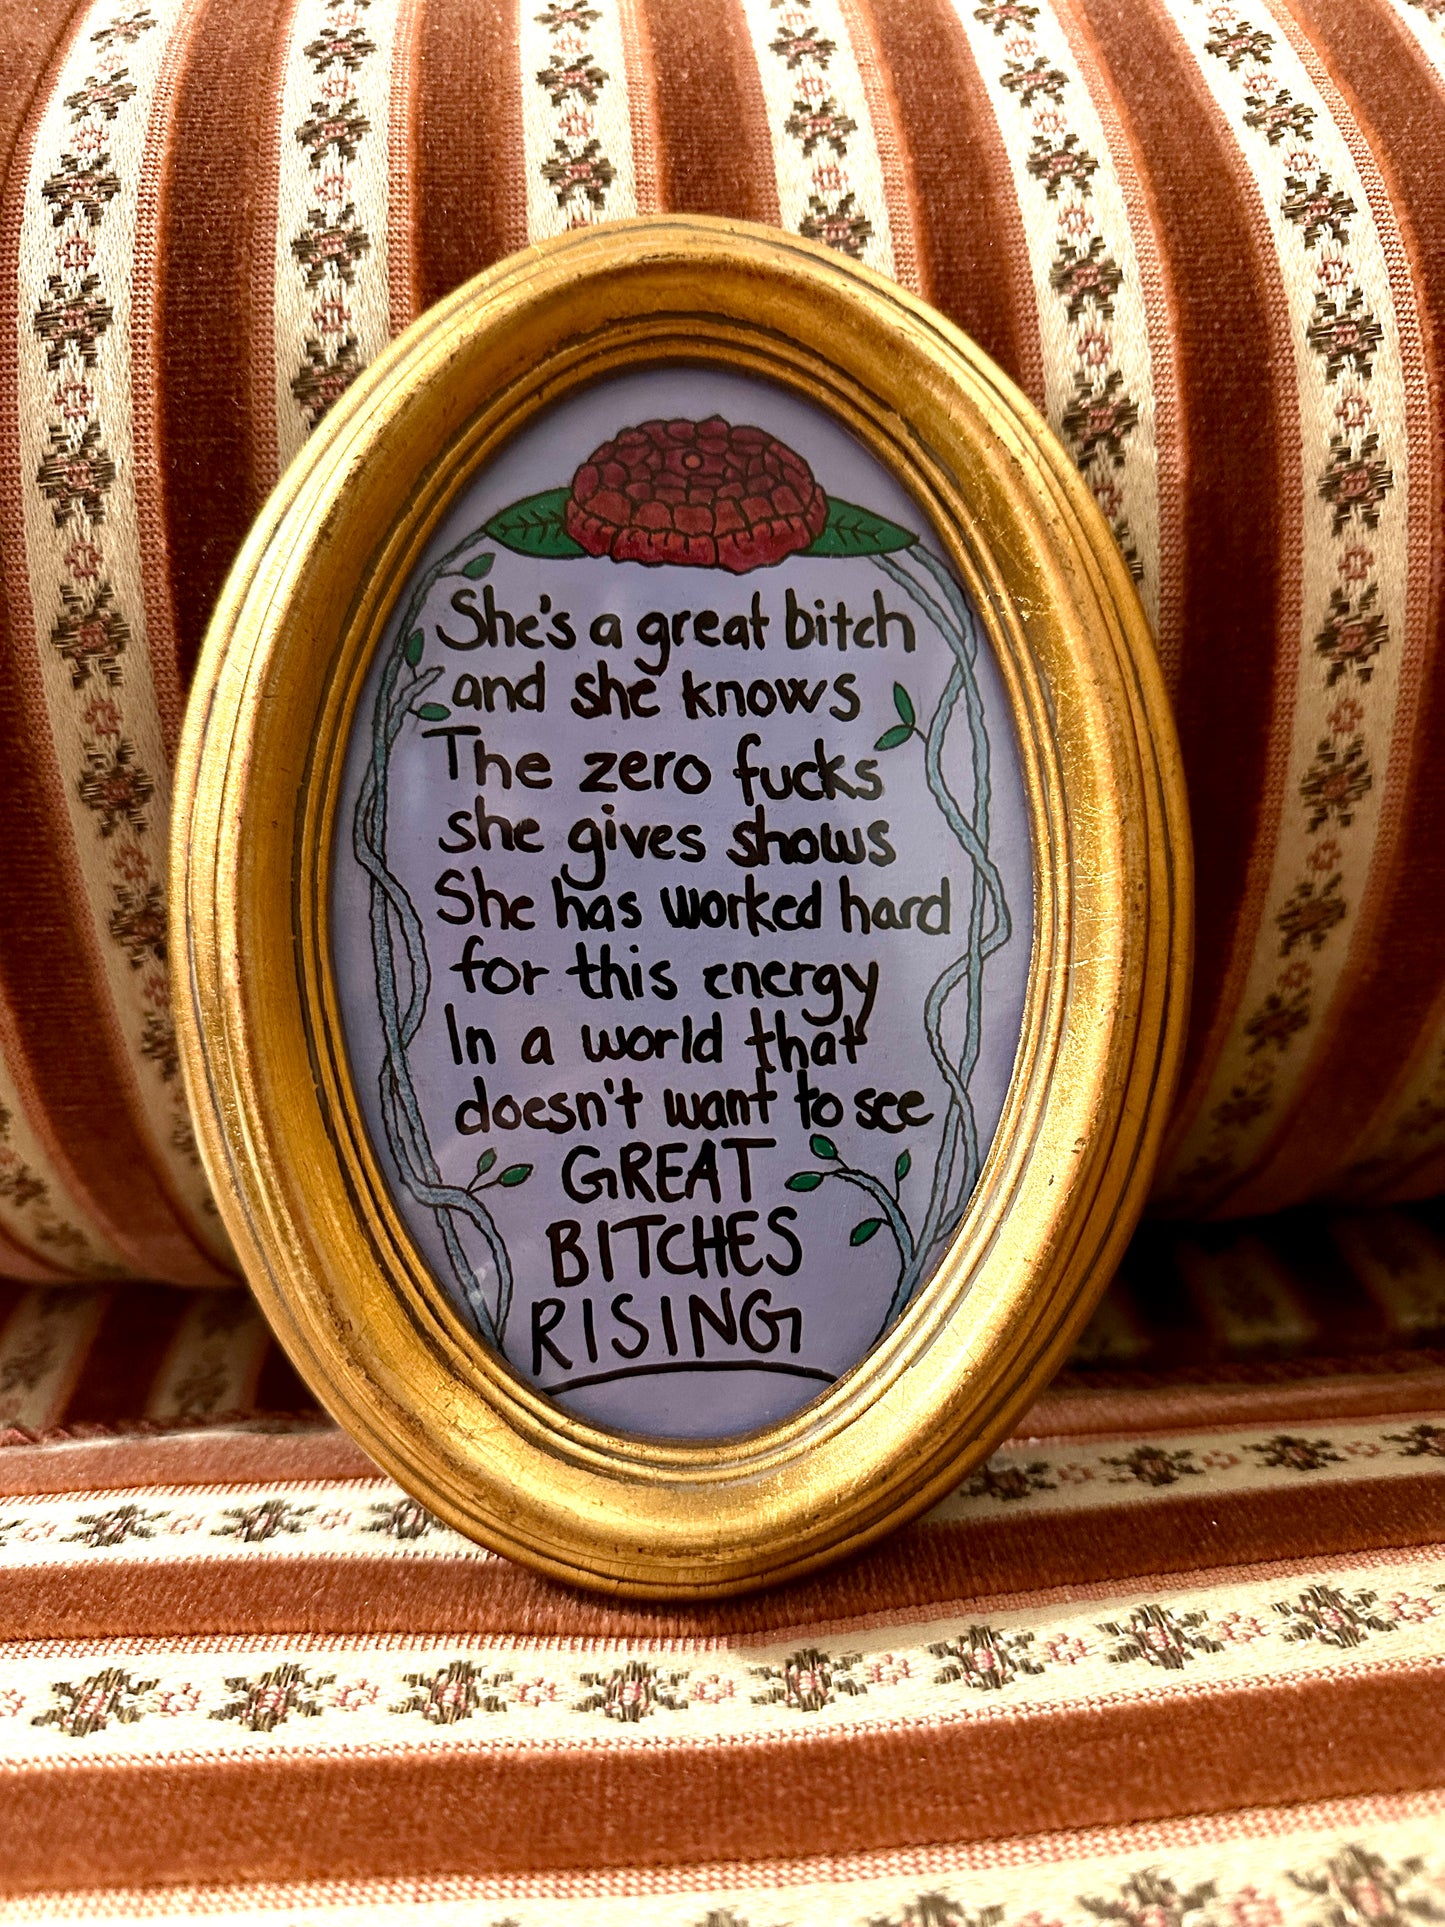 She's a great bitch
and she knows
The zero fucks
she gives shows
She has worked hard
for this energy
In a world that
doesn't want to see
GREAT
BITCHES
RISING